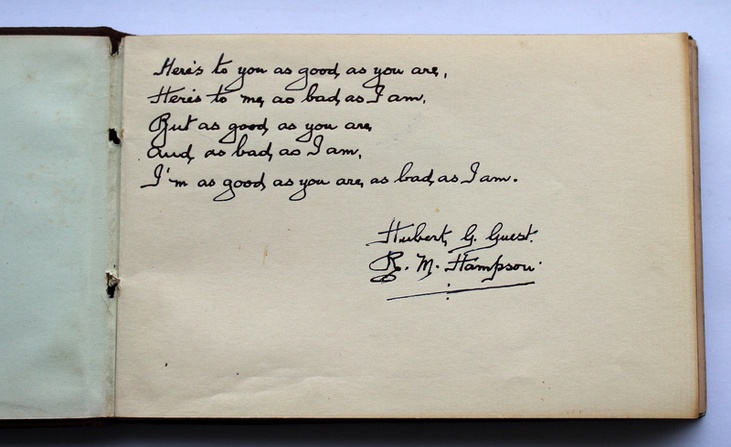 Here's to you as good, as you are,
Here's to me, as bad, as I am,
But as good, as you are,
and, as bad, as I am,
I'm as good, as you are, as bad, as I am.
Hubert, G. Guest.
R. M. Hampson.